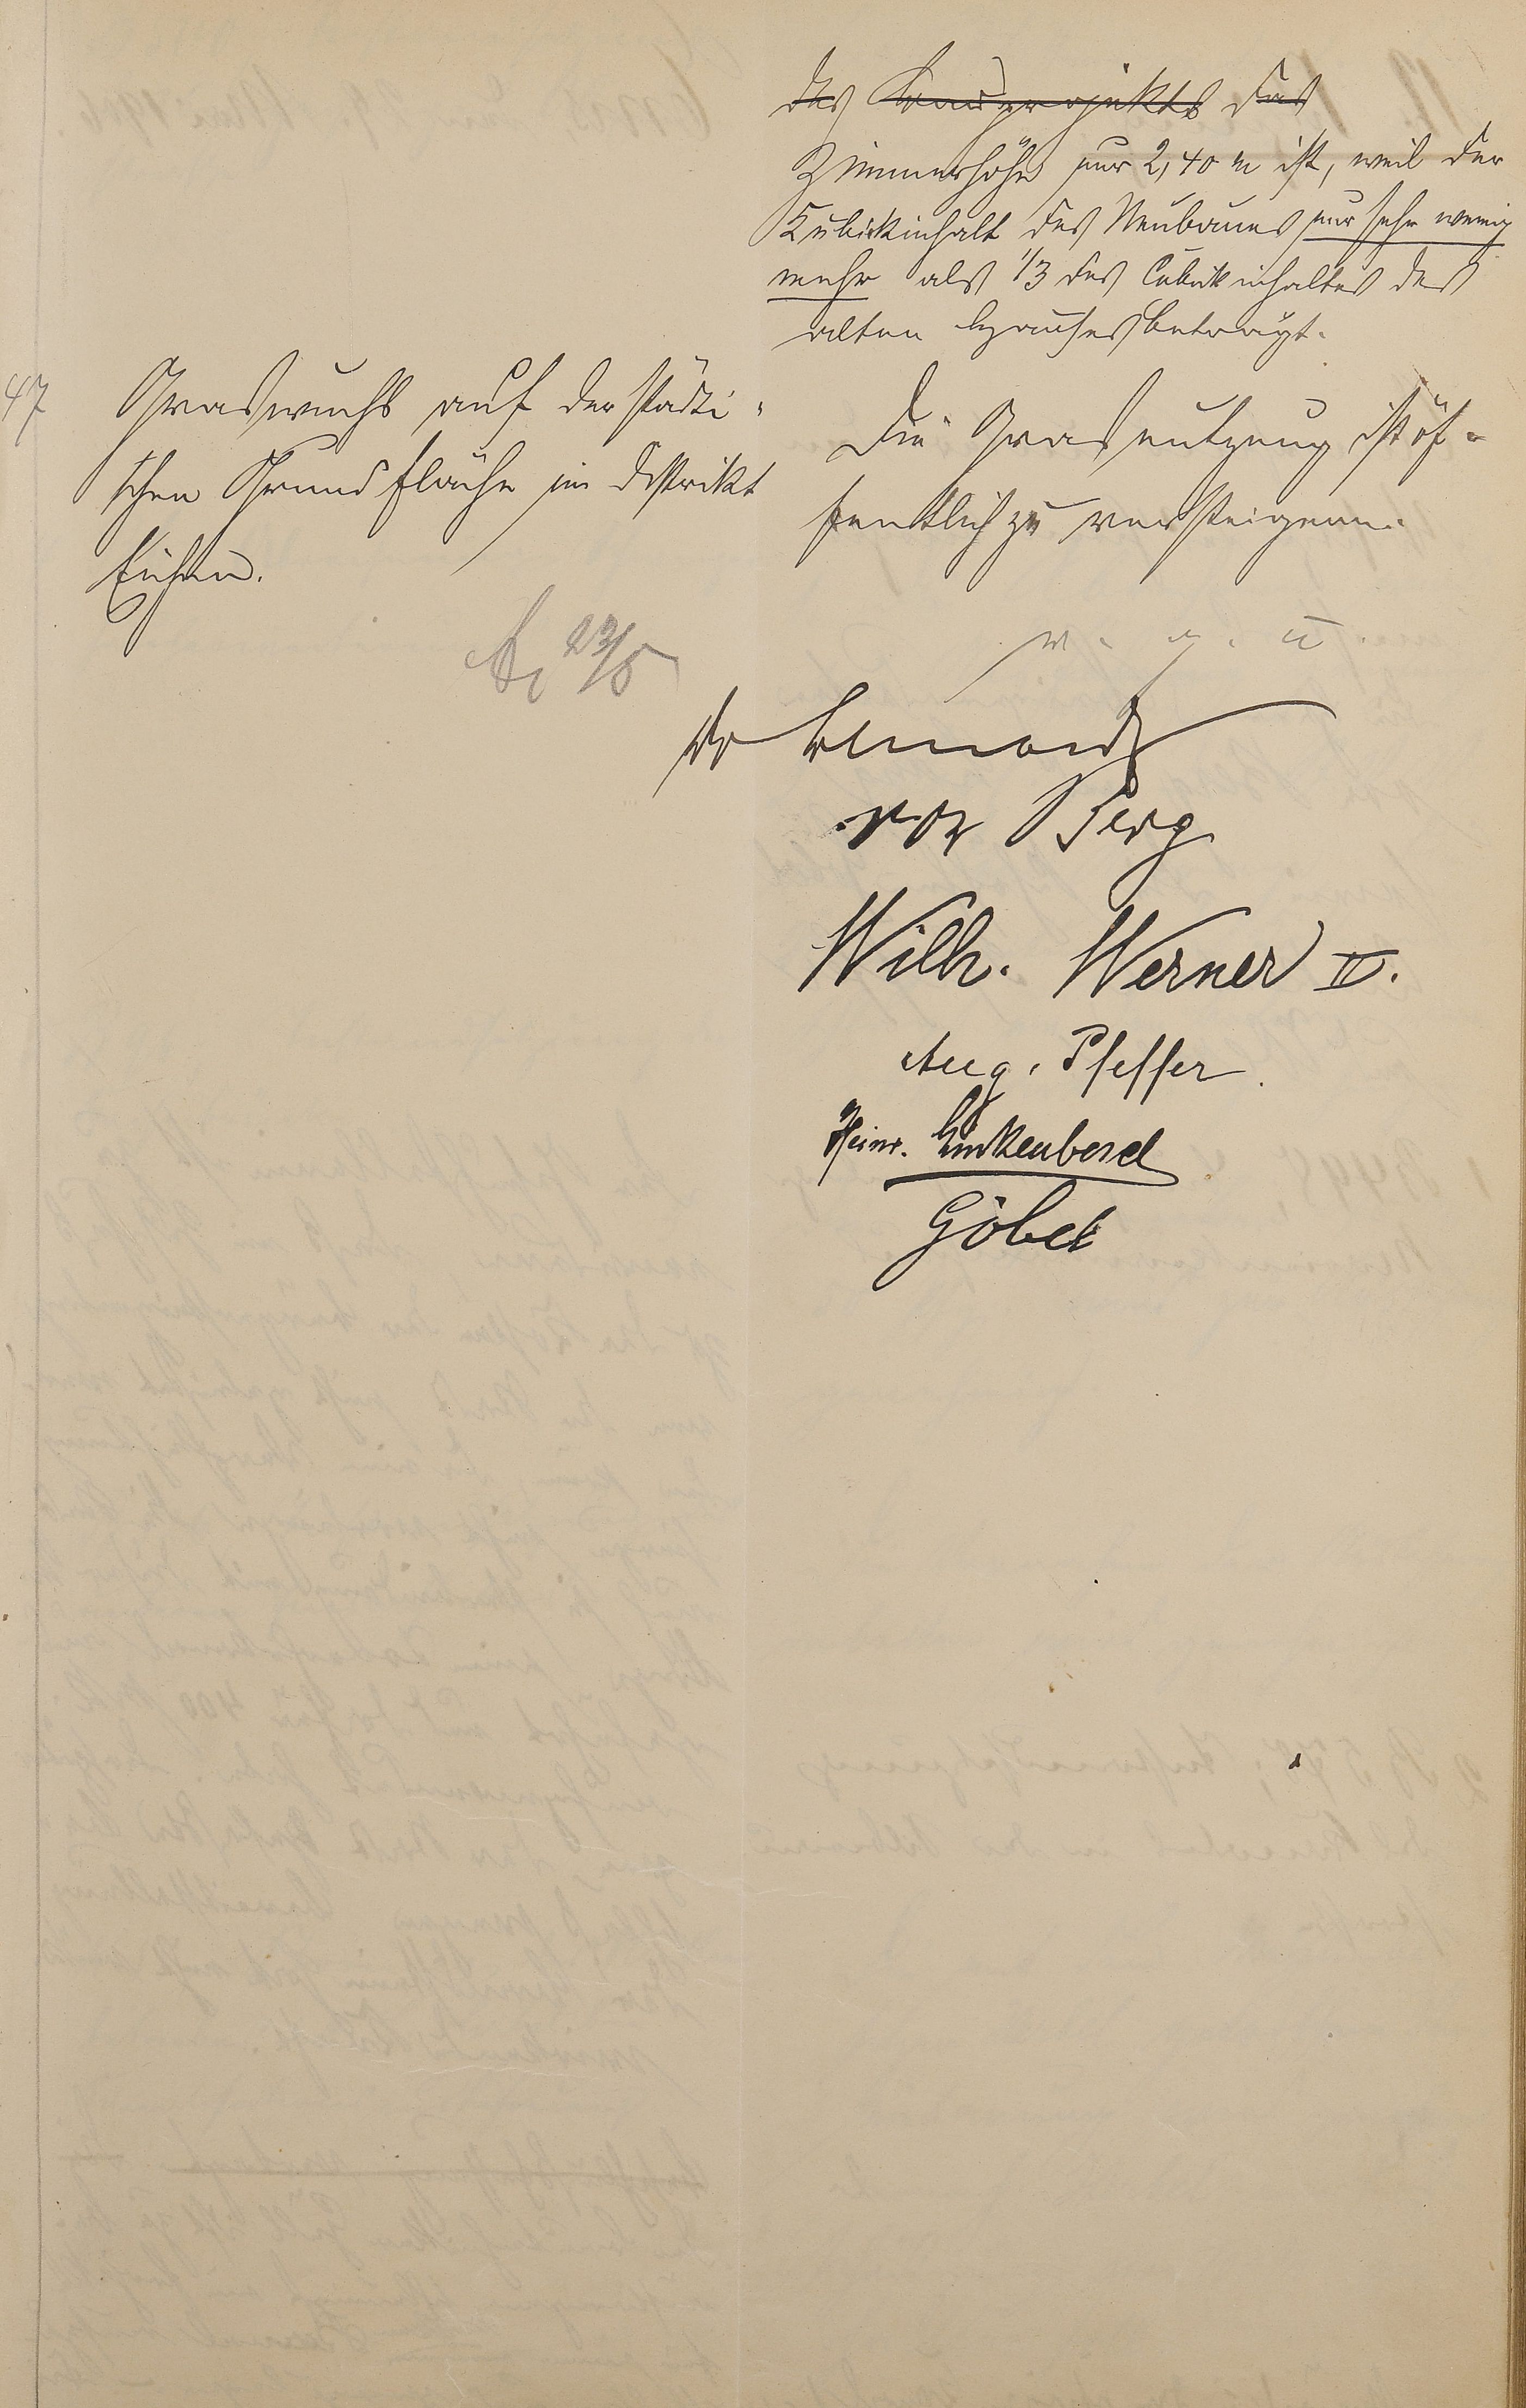 des Bauprojekts das
Zimmerhöhe nur 2,40 m ist, weil der
Kubikinhalt des Neubaues nur sehr wenig
mehr als 1/3 des Cubikinhaltes des
alten Hauses beträgt.
47
Graswuchs auf der städti-
schen Grundfläche im Distrikt
Eichen.
Die Grasnutzung ist öf-
fentlich zu versteigern.
23/5
v. g. u.
Dr
von Berg
Wilh. Werner II.
Aug. Pfeffer
Heinr.
Göbel